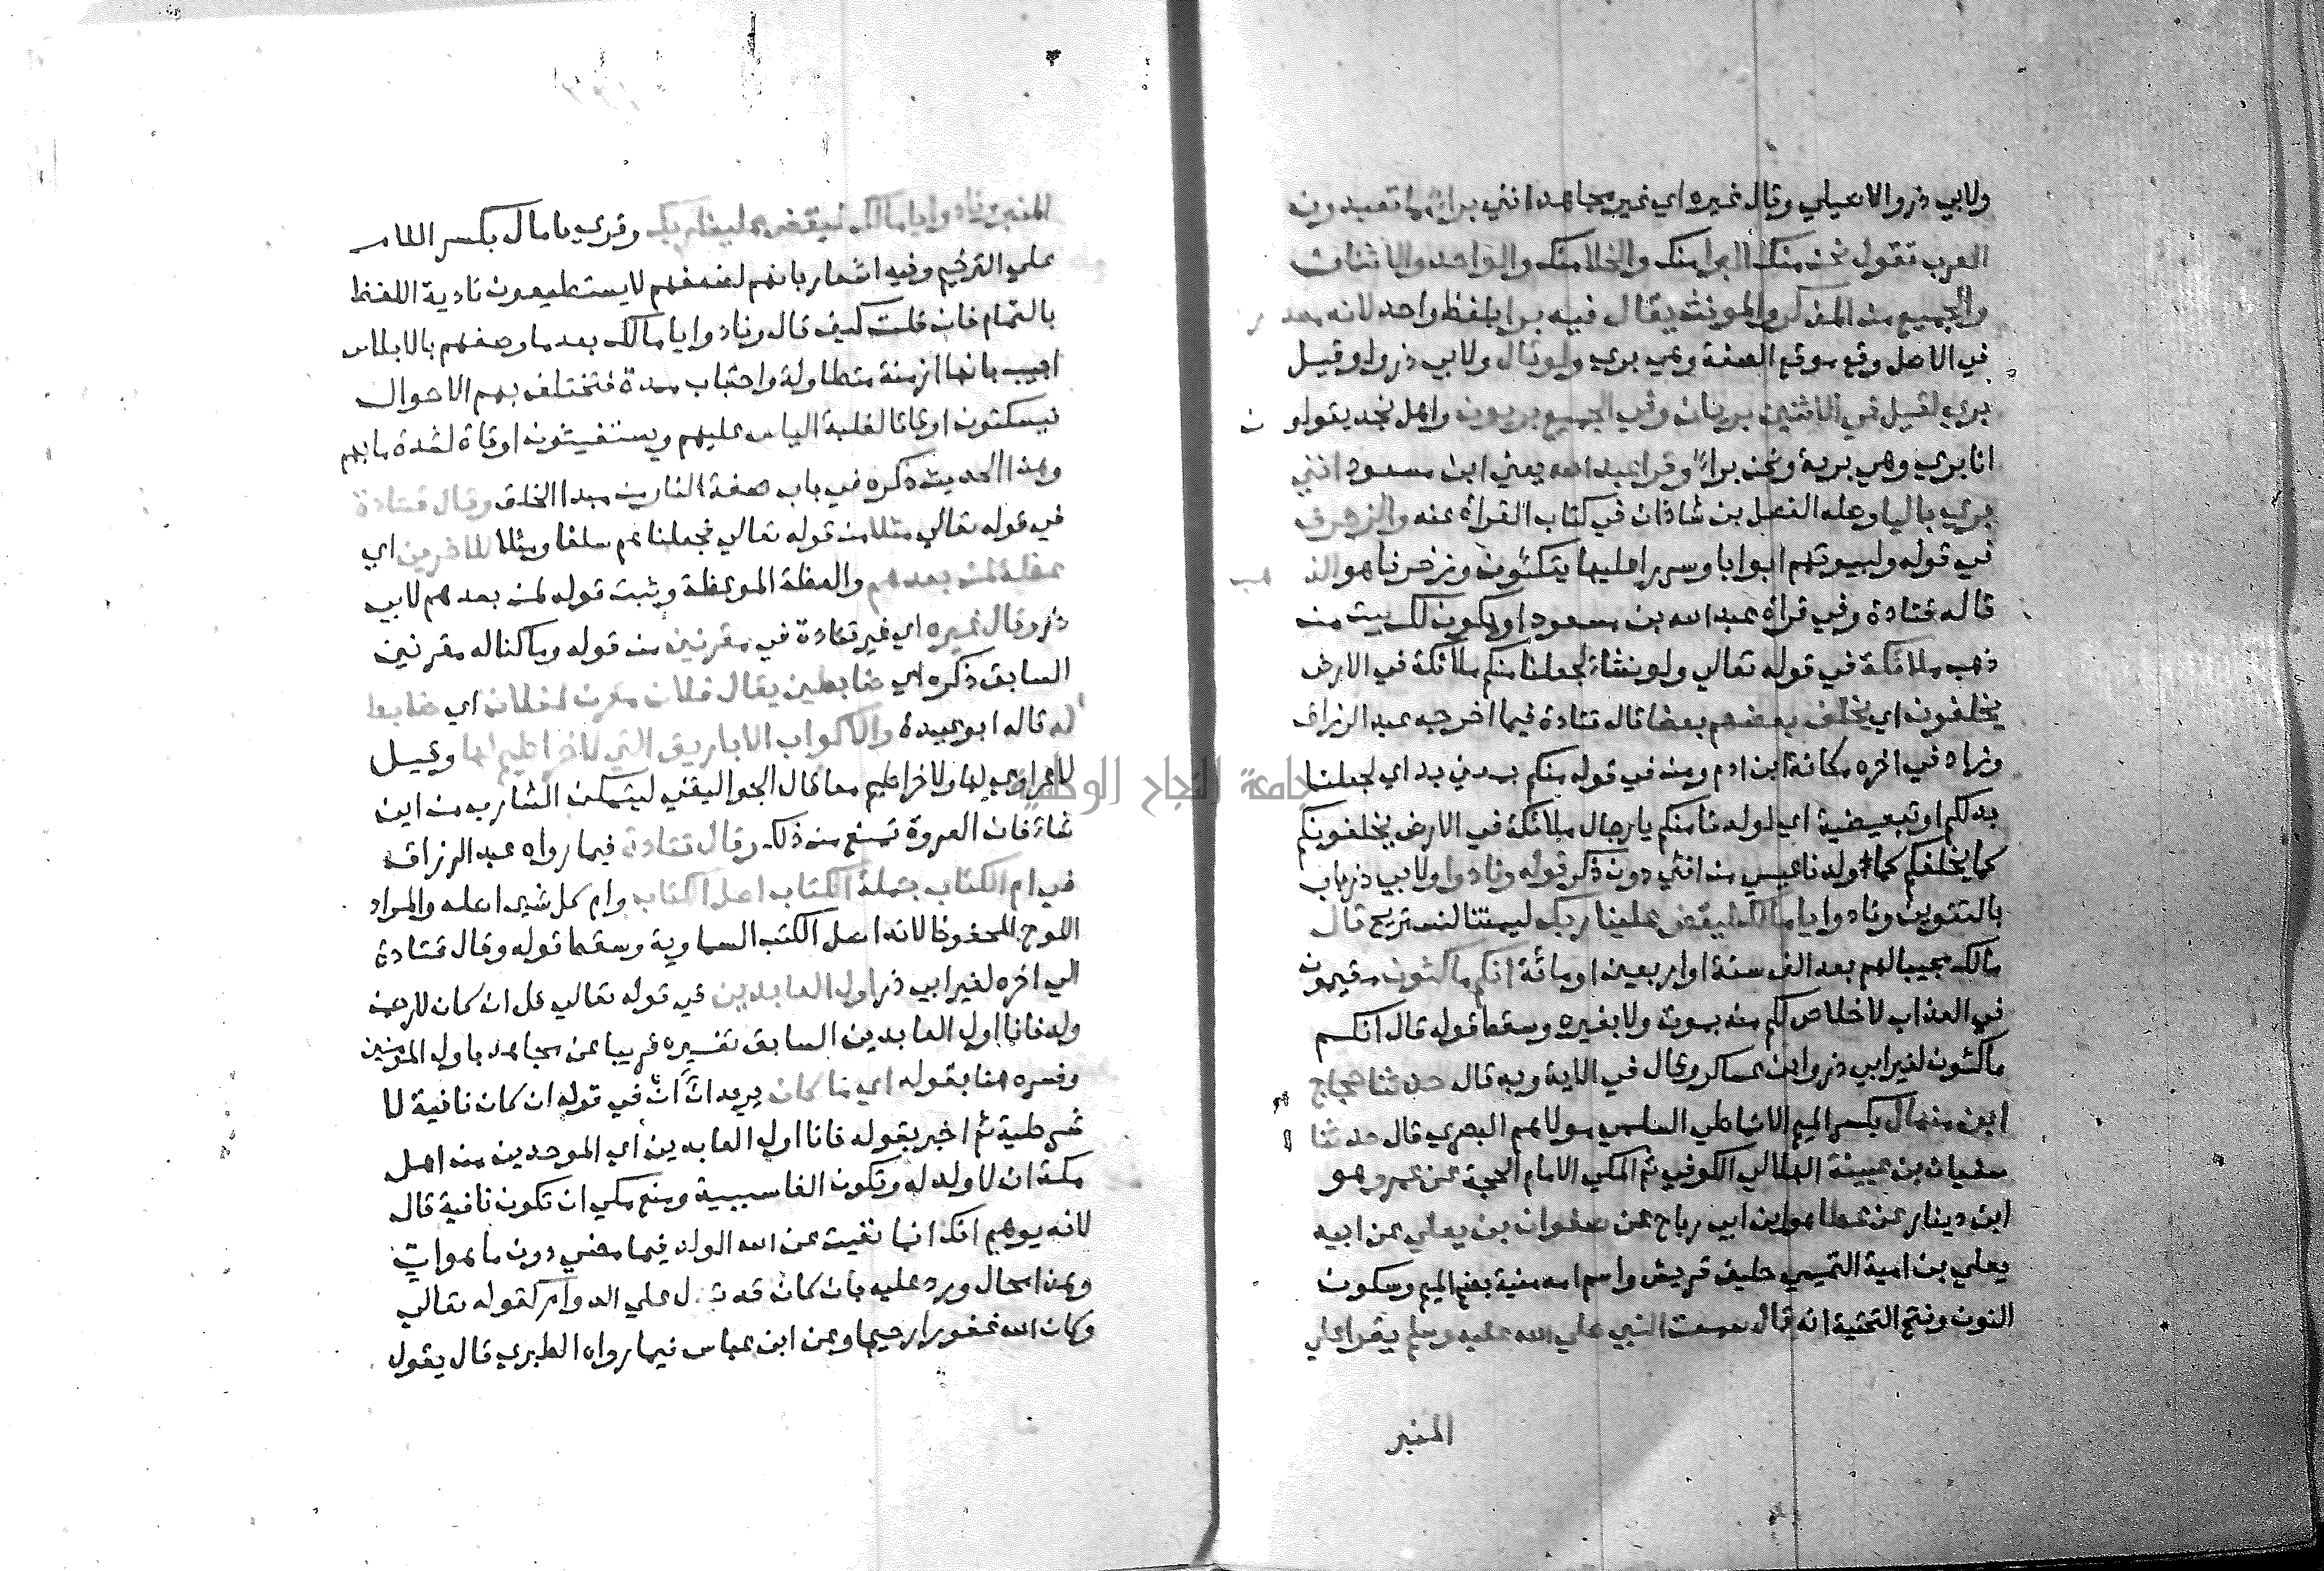 ولابي ذر والاصيلي وقال غيره اي غير مجاهد انني براء مما تعبدون
العرب تقول نحن منك البرا منك والخلا منك والواحد والاثنان
والجميع من المذكر والمونث يقال فيه برا بلفظ واحد لانه مصدر
في الاصل وقع موقع الصفة وهي بري ولو قال ولابي ذر ولو قيل
بري لقيل في الاثنين بريان وفي الجميع بريون واهل نجد يقولون
انا بري وهي برية ونحن براء وقرا عبد الله يعني ابن مسعود انني
بري باليا وصله الفضل بن شاذان في كتاب القراة عنه والزخرف
في قوله ولبيوتهم ابوابا وسررا عليها يتكئون وزخرفا هو الذهب
قاله قتادة وفي قراة عبد الله بن مسعود او يكون لك بيت من
ذهب ملائكة في قوله تعالي ولو نشاء لجعلنا منكم ملائكة في الارض
يخلفون اي يخلف بعضهم بعضا قاله قتادة فيما اخرجه عبد الرزاق
وزاد في اخره مكانة ابن ادم ومن في قوله منكم بمعني بدل اي لجعلنا
بدلكم او تبعيضية اي لولدنا منكم يا رجال ملائكة في الارض يخلفونكم
كما يخلفكم كما ولدنا عيسي من انثي دون ذكر قوله ونادوا ولابي ذر باب
بالتنوين ونادوا يا مالك ليقض علينا ربك ليمتنا لنستريح قال
مالك مجيبا لهم بعد الف سنة او اربعين او مائة انكم ماكثون مقيمون
في العذاب لا خلاص لكم منه بموت ولا بغيره وسقط قوله قال انكم
ماكثون لغير ابي ذر وابن عساكر وقال في الاية وبه قال حدثنا حجاج
ابن منهال بكسر الميم الانماطي السلمي مولاهم البصري قال حدثنا
سفيان بن عيينة الهلالي الكوفي ثم المكي الامام الحجة عن عمرو هو
ابن دينار عن عطا هو ابن ابي رباح عن صفوان بن يعلي عن ابيه
يعلي بن امية التميمي حليف قريش واسم امه منية بضم الميم وسكون
النون وفتح التحتية انه قال سمعت النبي صلي الله عليه وسلم يقرا علي
المنبر
المنبر ونادوا يا مالك ليقض علينا ربك وقري يا مال بكسر اللام
علي الترخيم وفيه اشعار بانهم لضعفهم لا يستطيعون تادية اللفظ
بالتمام فان قلت كيف قال ونادوا يا مالك بعد ما وصفهم بالابلاس
اجيب بانها ازمنة متطاولة واحقاب ممدة فتختلف بهم الاحوال
فيسكتون اوقاتا لغلبة الياس عليهم ويستغيثون اوقاة لشدة ما بهم
وهذا الحديث ذكره في باب صفة النار من مبدا الخلق وقال قتادة
في قوله تعالي مثلا من قوله تعالي فجعلناهم سلفا ومثلا للاخرين اي
عظة لمن بعدهم والعظة الموعظة وثبت قوله لمن بعدهم لابي
ذر وقال غيره اي غير قتادة في مقرنين من قوله وما كنا له مقرنين
السابق ذكره اي ضابطين يقال فلان مقرن لفلان اي ضابط
له قاله ابو عبيدة والاكواب الاباريق التي لا خراطيم لها وقيل
لا عراوي لها ولا خراطيم معا قال الجواليقي ليتمكن الشارب من اين
شا فان العروة تمنع من ذلك وقال قتادة فيما رواه عبد الرزاق
في ام الكتاب جملة الكتاب اصل الكتاب وام كل شي اصله والمراد
اللوح المحفوظ لانه اصل الكتب السماوية وسقط قوله وقال قتادة
الي اخره لغير ابي ذر اول العابدين في قوله تعالي قل ان كان للرحمن
ولد فانا اول العابدين السابق تفسيره قريبا عن مجاهد باول المومنين
وفسره هنا بقوله اي ما كان يريد ان ان في قوله ان كان نافية لا
شرطية ثم اخبر بقوله فانا اول العابدين اي الموحدين من اهل
مكة ان لا ولد له وتكون الفا سببية ومنع مكي ان تكون نافية قال
لانه يوهم انك انما نفيت عن الله الولد فيما مضي دون ما هو ات
وهذا محال ورد عليه بان كان قد تدل علي الدوام كقوله تعالي
وكان الله غفورا رحيما وعن ابن عباس فيما رواه الطبري قال يقول
جامعة النجاح الوطنية